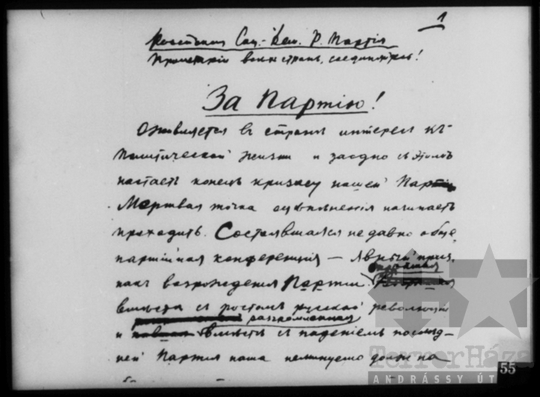 1
Россійская Соц.-Дем. Р. Партія
Пролетаріи всѣхъ странъ, соединяйтесь!
За Партію!
Оживляется въ странѣ интересъ къ
политической жизни и заодно съ этимъ
настаетъ конецъ кризису нашей Партіи
Мертвая точка оцѣпенѣнія начинаетъ
проходить. Состоявшаяся недавно обще-
партійная конференція — явный приз
накъ возрожденія Партіи.
вмѣстѣ съ ростомъ русской революціи
и разгромленная
вмѣстѣ съ паденіемъ послѣд-
ней Партія наша неминуемо должна
55
TerrorHáza
ANDRÁSSY ÚT